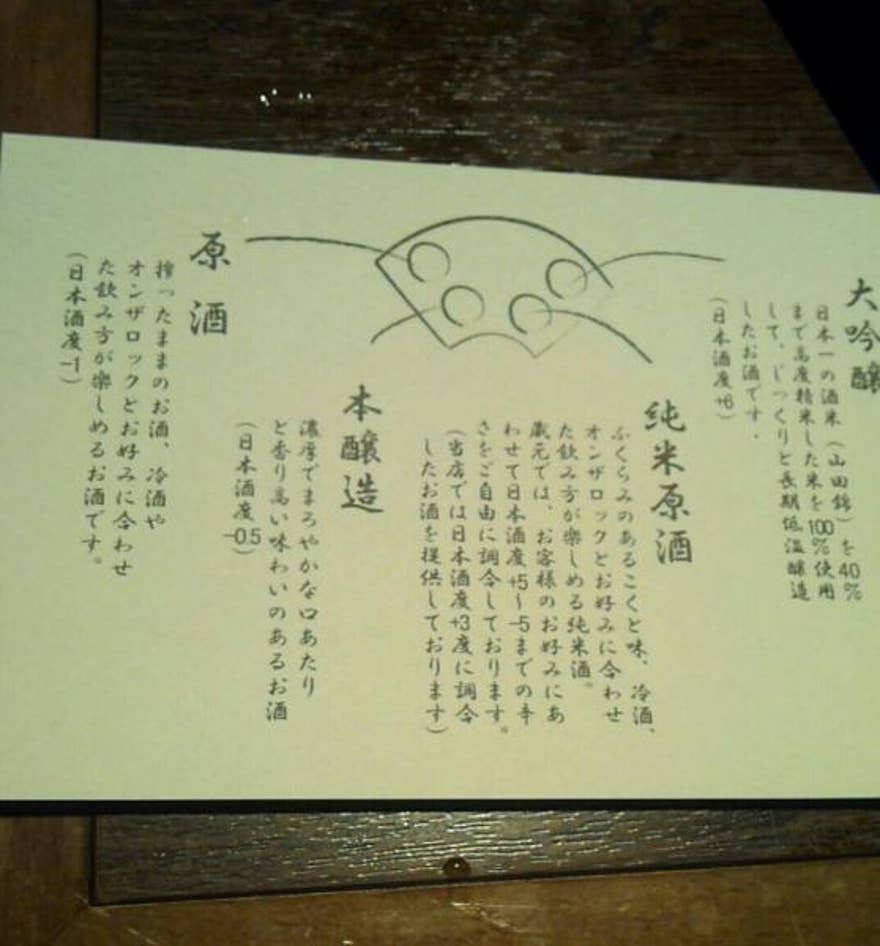 大吟醸
日本一の酒米（山田錦）を40％
まで高度精米した米を100％使用
して、じっくりと長期低温醸造
したお酒です。
（日本酒度+6）
純米原酒
ふくらみのあるこくと味、冷酒、
オンザロックとお好みに合わせ
た飲み方が楽しめる純米酒。
蔵元では、お客様のお好みにあ
わせて日本酒度+5〜−5までの辛
さをご自由に調合しております。
（当店では日本酒度+3度に調合
したお酒を提供しております）
本醸造
濃厚でまろやかな口あたり
と香り高い味わいのあるお酒
（日本酒度−0.5）
原酒
搾ったままのお酒、冷酒や
オンザロックとお好みに合わせ
た飲み方が楽しめるお酒です。
（日本酒度−1）